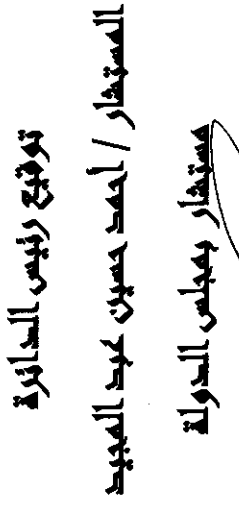 توقيع رئيس الدائرة
المستشار / أحمد حسين عبد المجيد
مستشار بمجلس الدولة